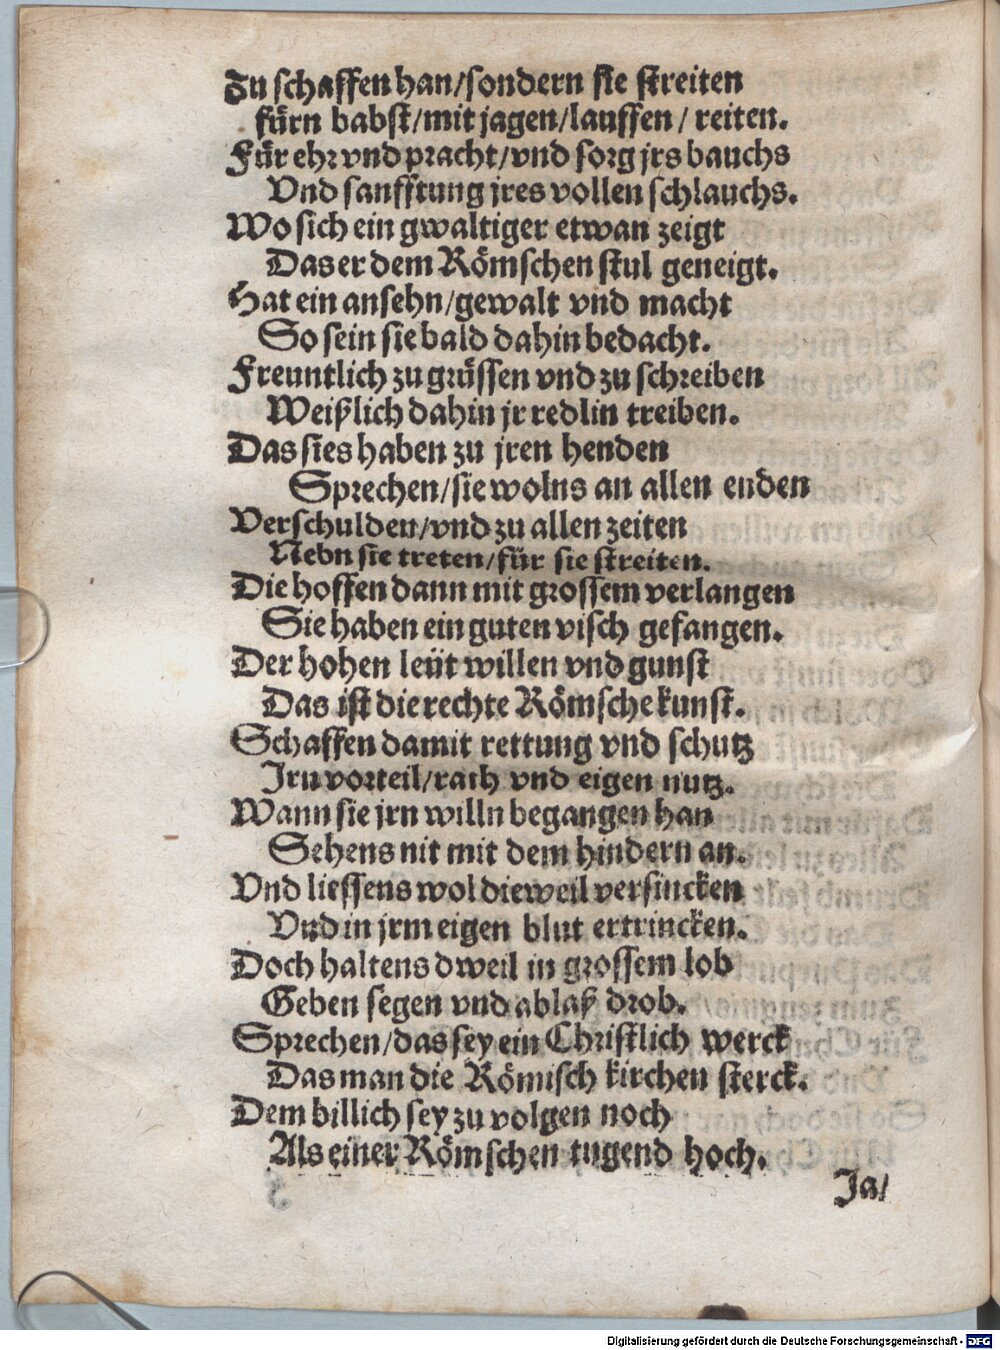 Zu schaffen han/sondern sie streiten
fürn babst/mit jagen/lauffen/ reiten.
Für ehr vnd pracht/vnd sorg jrs bauchs
Vnd sanfftung jres vollen schlauchs.
Wo sich ein gwaltiger etwan zeigt
Das er dem Römschen stul geneigt.
Hat ein ansehn/gewalt vnd macht
So sein sie bald dahin bedacht.
Freuntlich zu grüssen vnd zu schreiben
Weißlich dahin jr redlin treiben.
Das sies haben zu jren henden
Sprechen/sie wolns an allen enden
Verschulden/vnd zu allen zeiten
Nebn sie treten/für sie streiten.
Die hoffen dann mit grossem verlangen
Sie haben ein guten visch gefangen.
Der hohen leüt willen vnd gunst
Das ist die rechte Römsche kunst.
Schaffen damit rettung vnd schutz
Jrn vorteil/rath vnd eigen nutz.
Wann sie jrn willn begangen han
Sehens nit mit dem hindern an.
Vnd liessens wol dieweil versincken
Vnd in jrm eigen blut ertrincken.
Doch haltens dweil in grossem lob
Geben segen vnd ablaß drob.
Sprechen/das sey ein Christlich werck
Das man die Römisch kirchen sterck.
Dem billich sey zu volgen noch
Als einer Römschen tugend hoch.
Ja/
Digitalisierung gefördert durch die Deutsche Forschungsgemeinschaft - DFG